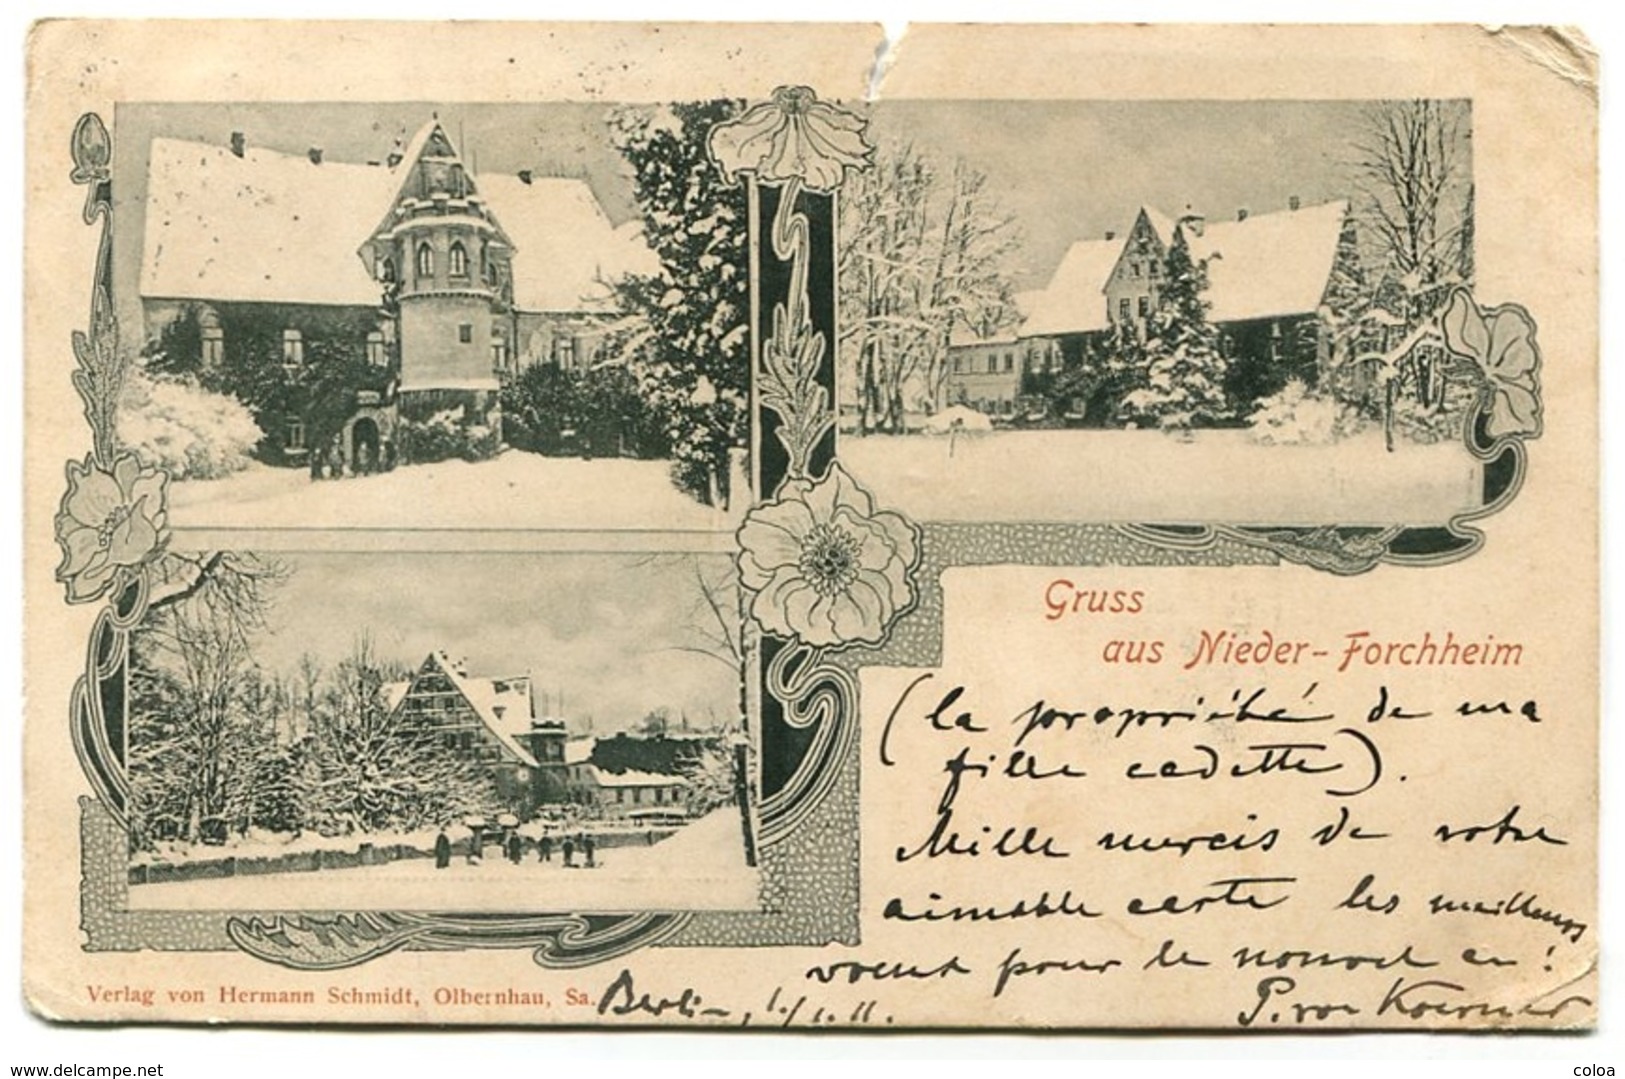 Gruss
aus Nieder-Forchheim
(la propriété de ma
fille cadette).
Mille mercis de votre
aimable carte les meilleurs
voeux pour le nouvel an!
P. von Koerner
Berlin, 1./1. 11.
Verlag von Hermann Schmidt, Olbernhau, Sa.
www.delcampe.net
coloa